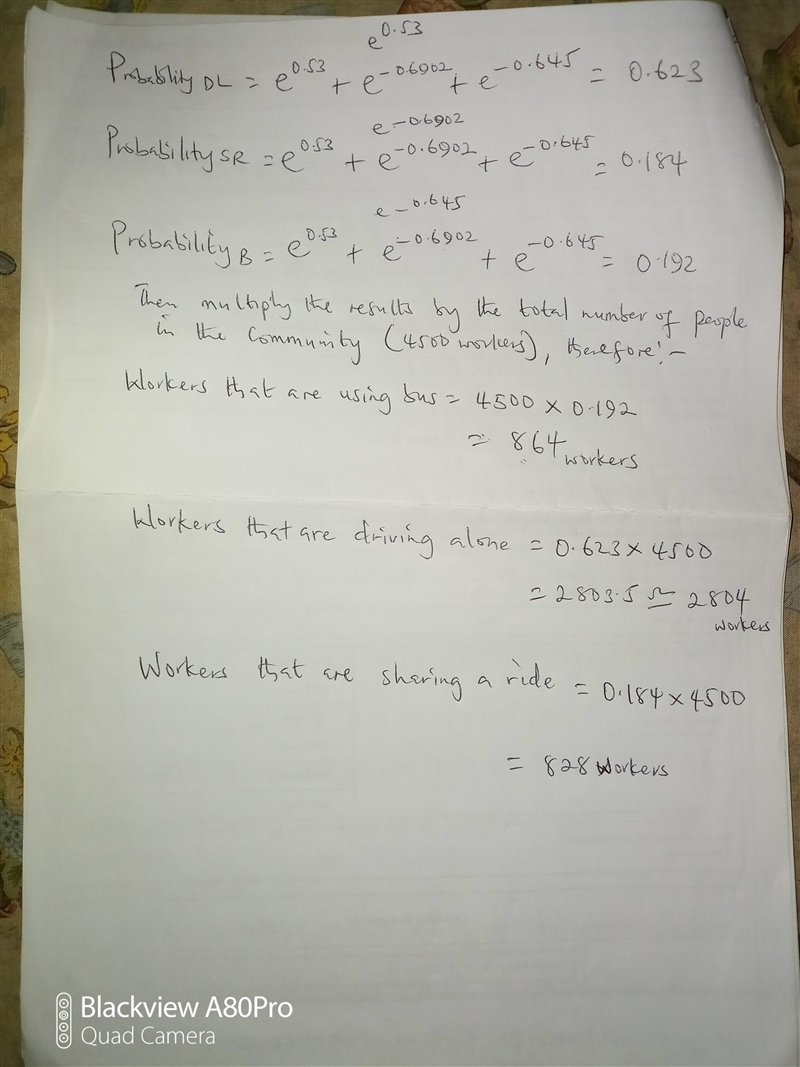 e^0.53
Probability DL = e^0.53 + e^-0.6902 + e^-0.645 = 0.623
e^-0.6902
Probability SR = e^0.53 + e^-0.6902 + e^-0.645 = 0.184
e^-0.645
Probability B = e^0.53 + e^-0.6902 + e^-0.645 = 0.192
Then multiply the results by the total number of people
in the Community (4500 workers), therefore:-
Workers that are using bus = 4500 × 0.192
= 864 workers
Workers that are driving alone = 0.623 × 4500
= 2803.5 ≃ 2804
workers
Workers that are sharing a ride = 0.184 × 4500
= 828 workers
Blackview A80Pro
Quad Camera